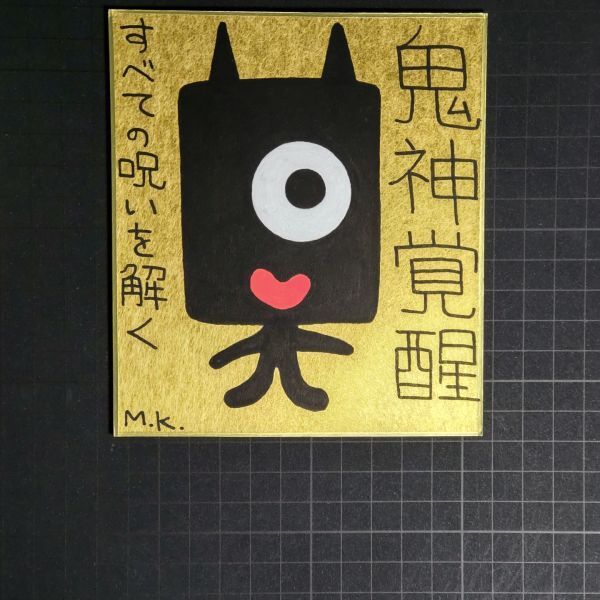 鬼神覚醒
すべての呪いを解く
M.K.